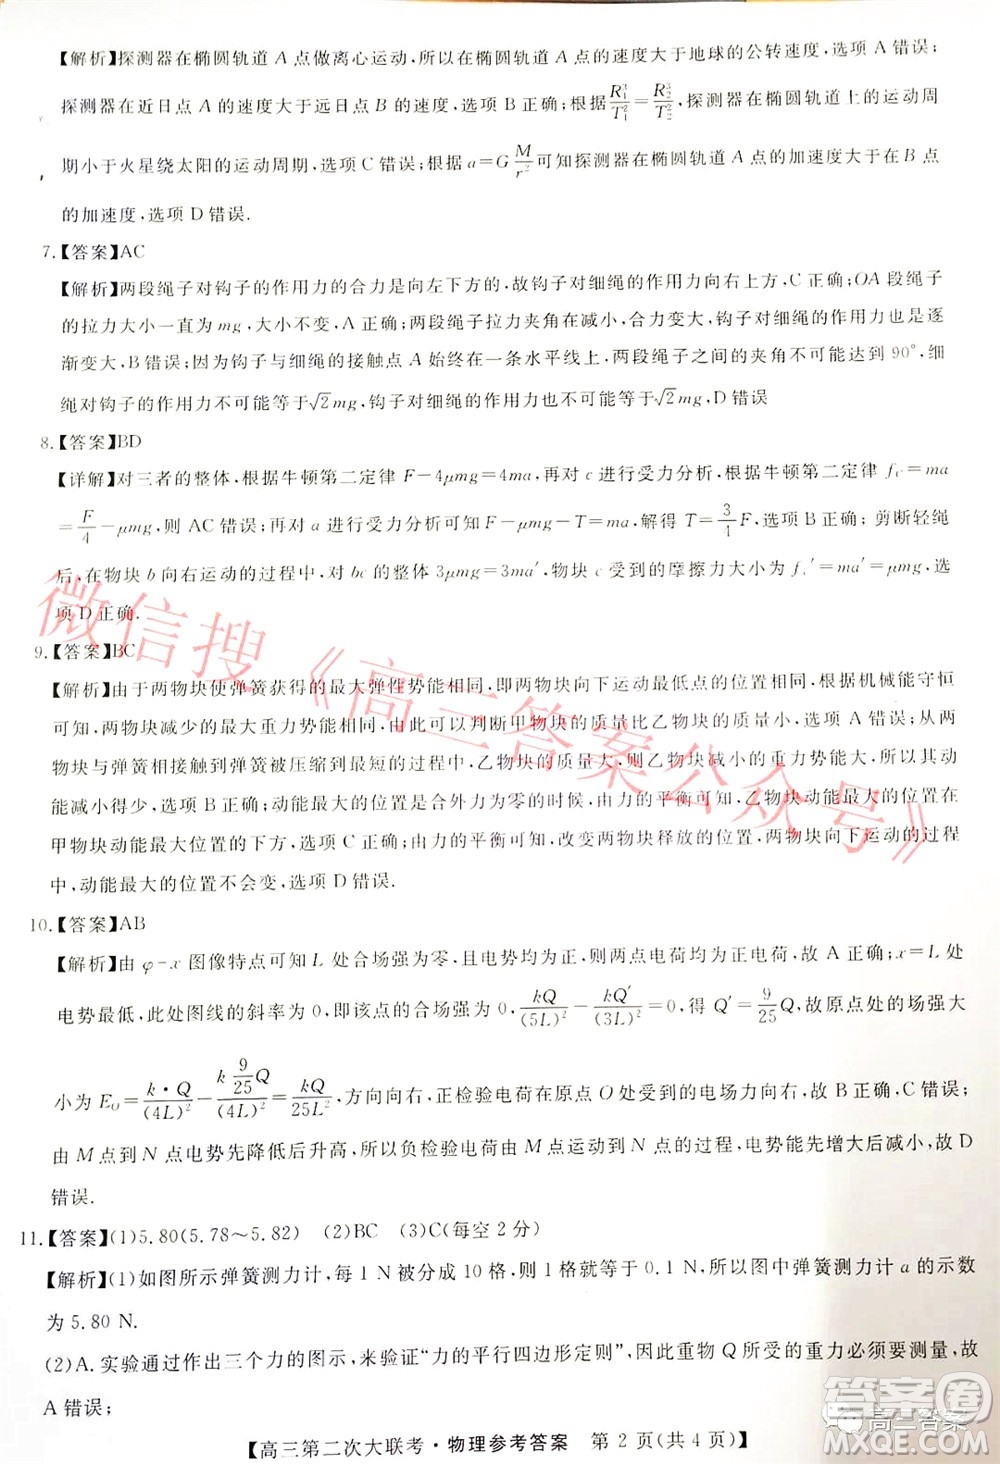 【解析】探测器在椭圆轨道 A 点做离心运动，所以在椭圆轨道 A 点的速度大于地球的公转速度，选项 A 错误；
探测器在近日点 A 的速度大于远日点 B 的速度，选项 B 正确；根据 R₁³/T₁²=R₂³/T₂²，探测器在椭圆轨道上的运动周
期小于火星绕太阳的运动周期，选项 C 错误；根据 a=G M/r² 可知探测器在椭圆轨道 A 点的加速度大于在 B 点
的加速度，选项 D 错误.
7.【答案】AC
【解析】两段绳子对钩子的作用力的合力是向左下方的，故钩子对细绳的作用力向右上方，C 正确；OA 段绳子
的拉力大小一直为 mg，大小不变，A 正确；两段绳子拉力夹角在减小，合力变大，钩子对细绳的作用力也是逐
渐变大，B 错误；因为钩子与细绳的接触点 A 始终在一条水平线上，两段绳子之间的夹角不可能达到 90°，细
绳对钩子的作用力不可能等于√2mg，钩子对细绳的作用力也不可能等于√2mg，D 错误
8.【答案】BD
【详解】对三者的整体，根据牛顿第二定律 F-4μmg=4ma，再对 c 进行受力分析，根据牛顿第二定律 fc=ma
=F/4-μmg，则 AC 错误；再对 a 进行受力分析可知 F-μmg-T=ma，解得 T=3/4F，B 正确；剪断轻绳
后，在物块 b 向右运动的过程中，对 bc 的整体 3μmg=3ma′，物块 c 受到的摩擦力大小为 fc′=ma′=μmg，选
项 D 正确.
9.【答案】BC
【解析】由于两物块使弹簧获得的最大弹性势能相同，即两物块向下运动最低点的位置相同，根据机械能守恒
可知，两物块减少的最大重力势能相同，由此可以判断甲物块的质量比乙物块的质量小，选项 A 错误；从两
物块与弹簧相接触到弹簧被压缩到最短的过程中，乙物块的质量大，则乙物块减小的重力势能大，所以其动
能减小得少，选项 B 正确；动能最大的位置是合外力为零的时候，由力的平衡可知，乙物块动能最大的位置在
甲物块动能最大位置的下方，选项 C 正确；由力的平衡可知，改变两物块释放的位置，两物块向下运动的过程
中，动能最大的位置不会变，选项 D 错误.
10.【答案】AB
【解析】由 φ-x 图像特点可知 L 处合场强为零，且电势均为正，所以两点电荷均为正电荷，故 A 正确；x=L 处
电势最低，此处图线的斜率为 0，即该点的合场强为 0，kQ/(5L)²-kQ′/(3L)²=0，得 Q′=9/25Q，故原点处的场强大
小为 E_O=k·Q/(4L)²-k 9/25 Q/(4L)²=kQ/25L²，方向向右，正检验电荷在原点 O 处受到的电场力向右，故 B 正确，C 错误；
由 M 点到 N 点电势先降低后升高，所以负检验电荷由 M 点运动到 N 点的过程，电势能先增大后减小，故 D
错误.
11.【答案】(1)5.80(5.78～5.82) (2)BC (3)C(每空 2 分)
【解析】(1)如图所示弹簧测力计，每 1 N 被分成 10 格，则 1 格就等于 0.1 N，所以图中弹簧测力计 a 的示数
为 5.80 N.
(2)A. 实验通过作出三个力的图示，来验证“力的平行四边形定则”，因此重物 Q 所受的重力必须要测量，故
A 错误；
【高三第二次大联考·物理参考答案 第 2 页(共 4 页)】
微信搜《高三答案公众号》
高三答案
答案圈